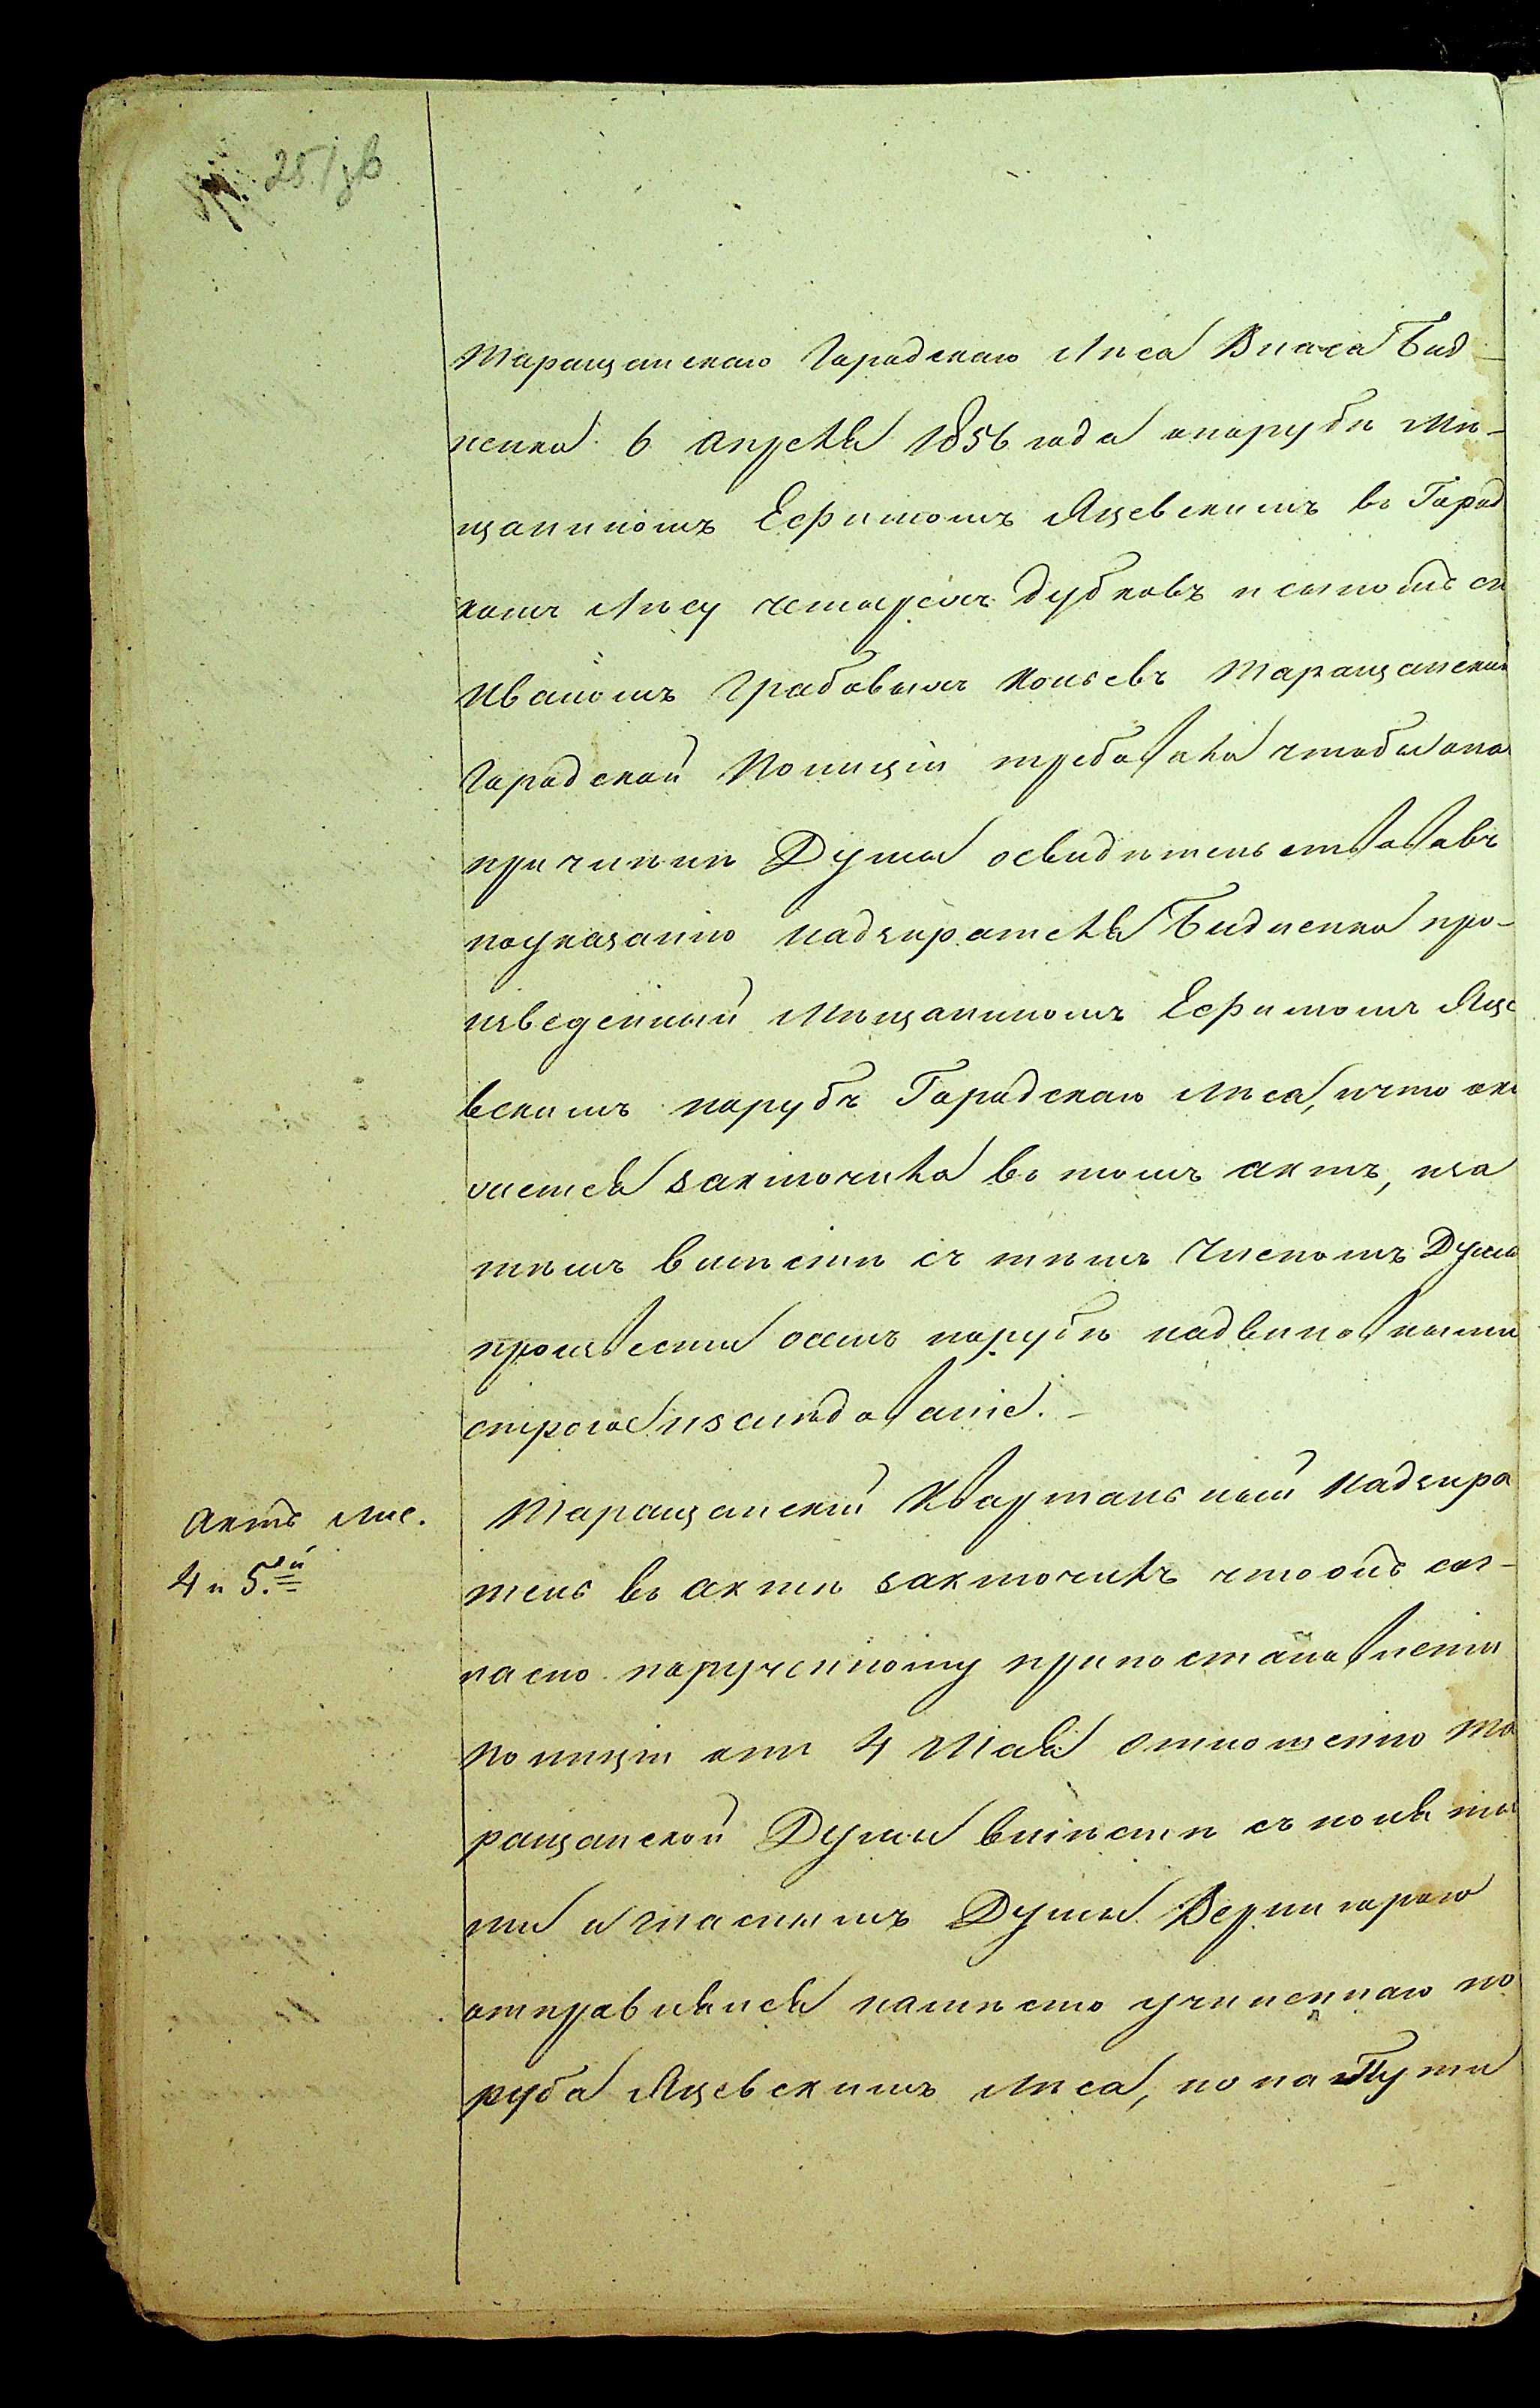 25/зв
Таращанскаго Городскаго Лѣса Власа Бид-
ненка 6 апреля 1856 года опорубѣ Мѣ-
щаниномъ Ефимомъ Яцевскимъ въ Город
комъ Лѣсу четырехъ дубковъ и сыномъ
Иваномъ Грабовыхъ Кольевъ Таращанской
Городской Полиціи требовала чтобы она
при членѣ Думы освидѣтельствовавъ
поуказанію надзирателя Бидненка про-
изведенный Мѣщаниномъ Ефимомъ Яце
вскимъ порубъ Городскаго Лѣса, ичто ока
жется заключила въ томъ актѣ, иза
тѣмъ вмѣстѣ съ тѣмъ Членомъ Думы
произвести осемъ порубѣ надвиновными
строгое изслѣдованіе. -
Актъ лис.
4 и 5.й
Таращанскій Квартальный Надзира
тель въ актѣ заключилъ чтоонъ сог-
ласно порученному припостановленіи
Полиціи ему 4 Мая отношенію Та
ращанской Думы вмѣстѣ съ поняты
ми и гласнымъ Думы Вернигорою
отправлялся намѣсто учиненнаго по
руба Яцевскимъ Лѣса, но на Пути